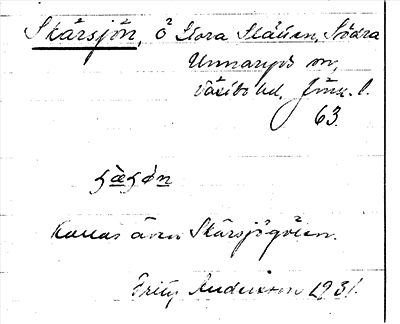 Skärsjön, ö Stora Slätten, Södra
Unnaryds sn,
Västbo hd. Jönk. l.
63.
Kallas även Skärsjögölen.
Fritz Anderson 1931.